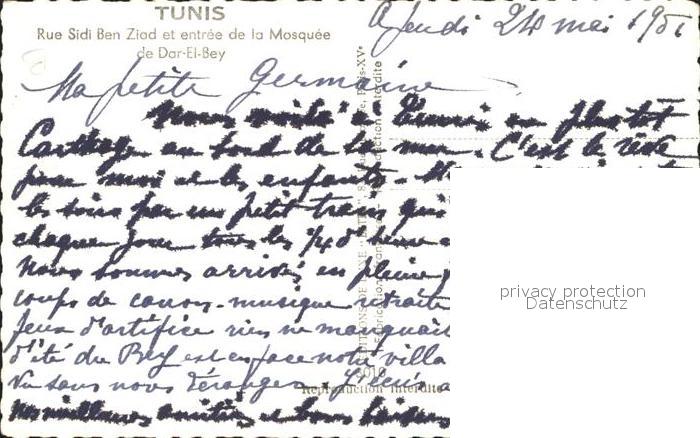 TUNIS
Rue Sidi Ben Ziad et entrée de la Mosquée
de Dar-El-Bey
Jeudi 24 mai 1951
Ma petite Germaine
Nous voilà à Tunis ou plutôt
Carthage au bord de la mer. C'est le rêve
pour moi et les enfants.
les soirs par un petit train qui
chaque jour tous les 1/4 d'heure
Nous sommes arrivés en pleine
coups de canons. musique retraite
Jeux d'artifice rien ne manquait
d'été du Bey est en face notre villa
Vu sans nous déranger.
Reproduction interdite
Nos meilleures amitiés et bons baisers
privacy protection
Datenschutz